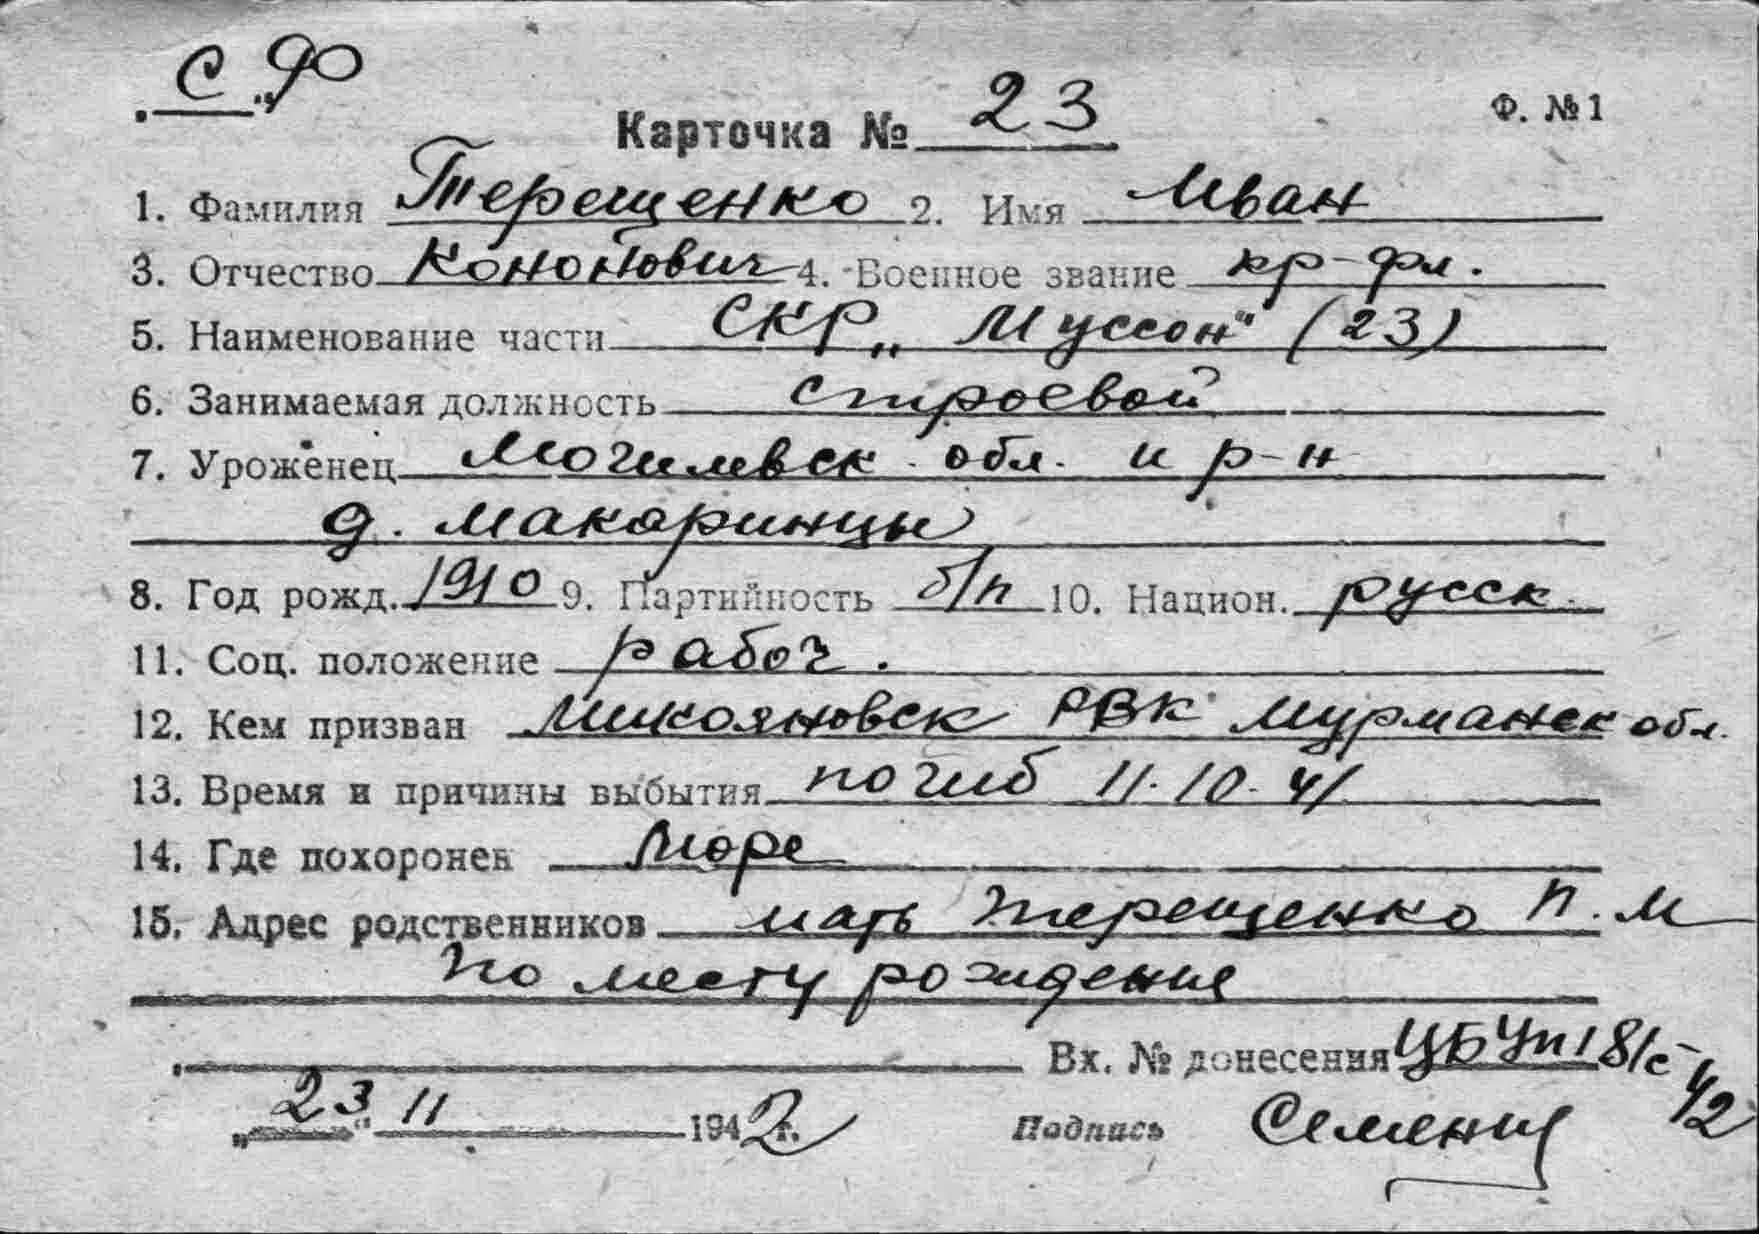 С.Ф
Ф. №1
Карточка № 23
1. Фамилия Терещенко 2. Имя Иван
3. Отчество Кононович 4. Военное звание кр-фл.
5. Наименование части СКР „Муссон" (23)
6. Занимаемая должность строевой
7. Уроженец Могилевск. обл. и р-н
д. Макаринцы
8. Год рожд. 1910 9. Партийность б/п 10. Национ. русск.
11. Соц. положение рабоч.
12. Кем призван Микояновск РВК Мурманск обл.
13. Время и причины выбытия погиб 11.10.41
14. Где похоронен Море
15. Адрес родственников мать Терещенко П. М
по месту рождения
Вх. № донесения 181с-42
„23" 11 1942 г. Подпись